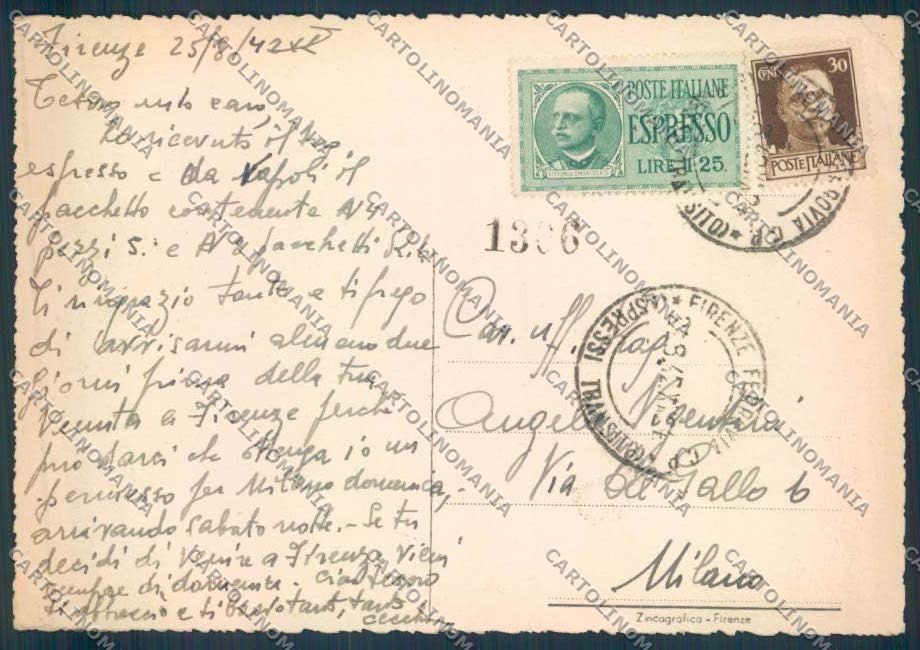 Firenze 25/8/42 XX
Tesoro mio caro,
ho ricevuto il tuo
espresso e da Napoli il
pacchetto contenente N 4
pezzi S. e N pacchetti
Ti ringrazio tanto e ti prego
di avvisarmi almeno due
giorni prima della tua
venuta a Firenze perchè
può darsi che ottenga io un
permesso per Milano domenica,
arrivando sabato notte. - Se tu
decidi di venire a Firenze vieni
sempre di domenica. Ciao Tesoro
ti abbraccio e ti bacio tanto, tanto
POSTE ITALIANE
ESPRESSO
LIRE 1.25.
VITTORIO EMANUELE
CENT. 30
POSTE ITALIANE
1306
FIRENZE FERROVIA C.P. (TRANSITO) ESPRESSI
Cav. uff. rag.
Angelo
Via Del Gallo 6
Milano
Zincografica - Firenze
CARTOLINOMANIA